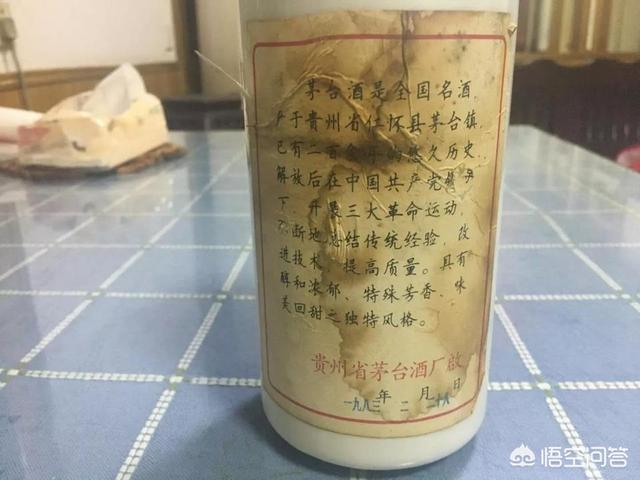 茅台酒是全国名酒，
产于贵州省仁怀县茅台镇
已有二百余年的悠久历史，
解放后在中国共产党
下，开展三大革命运动，
不断地总结传统经验，改
进技术，提高质量。具有
醇和浓郁、特殊芳香、味
美回甜之独特风格。
贵州省茅台酒厂啟
年 月 日
一九八三 二 二十八
悟空问答